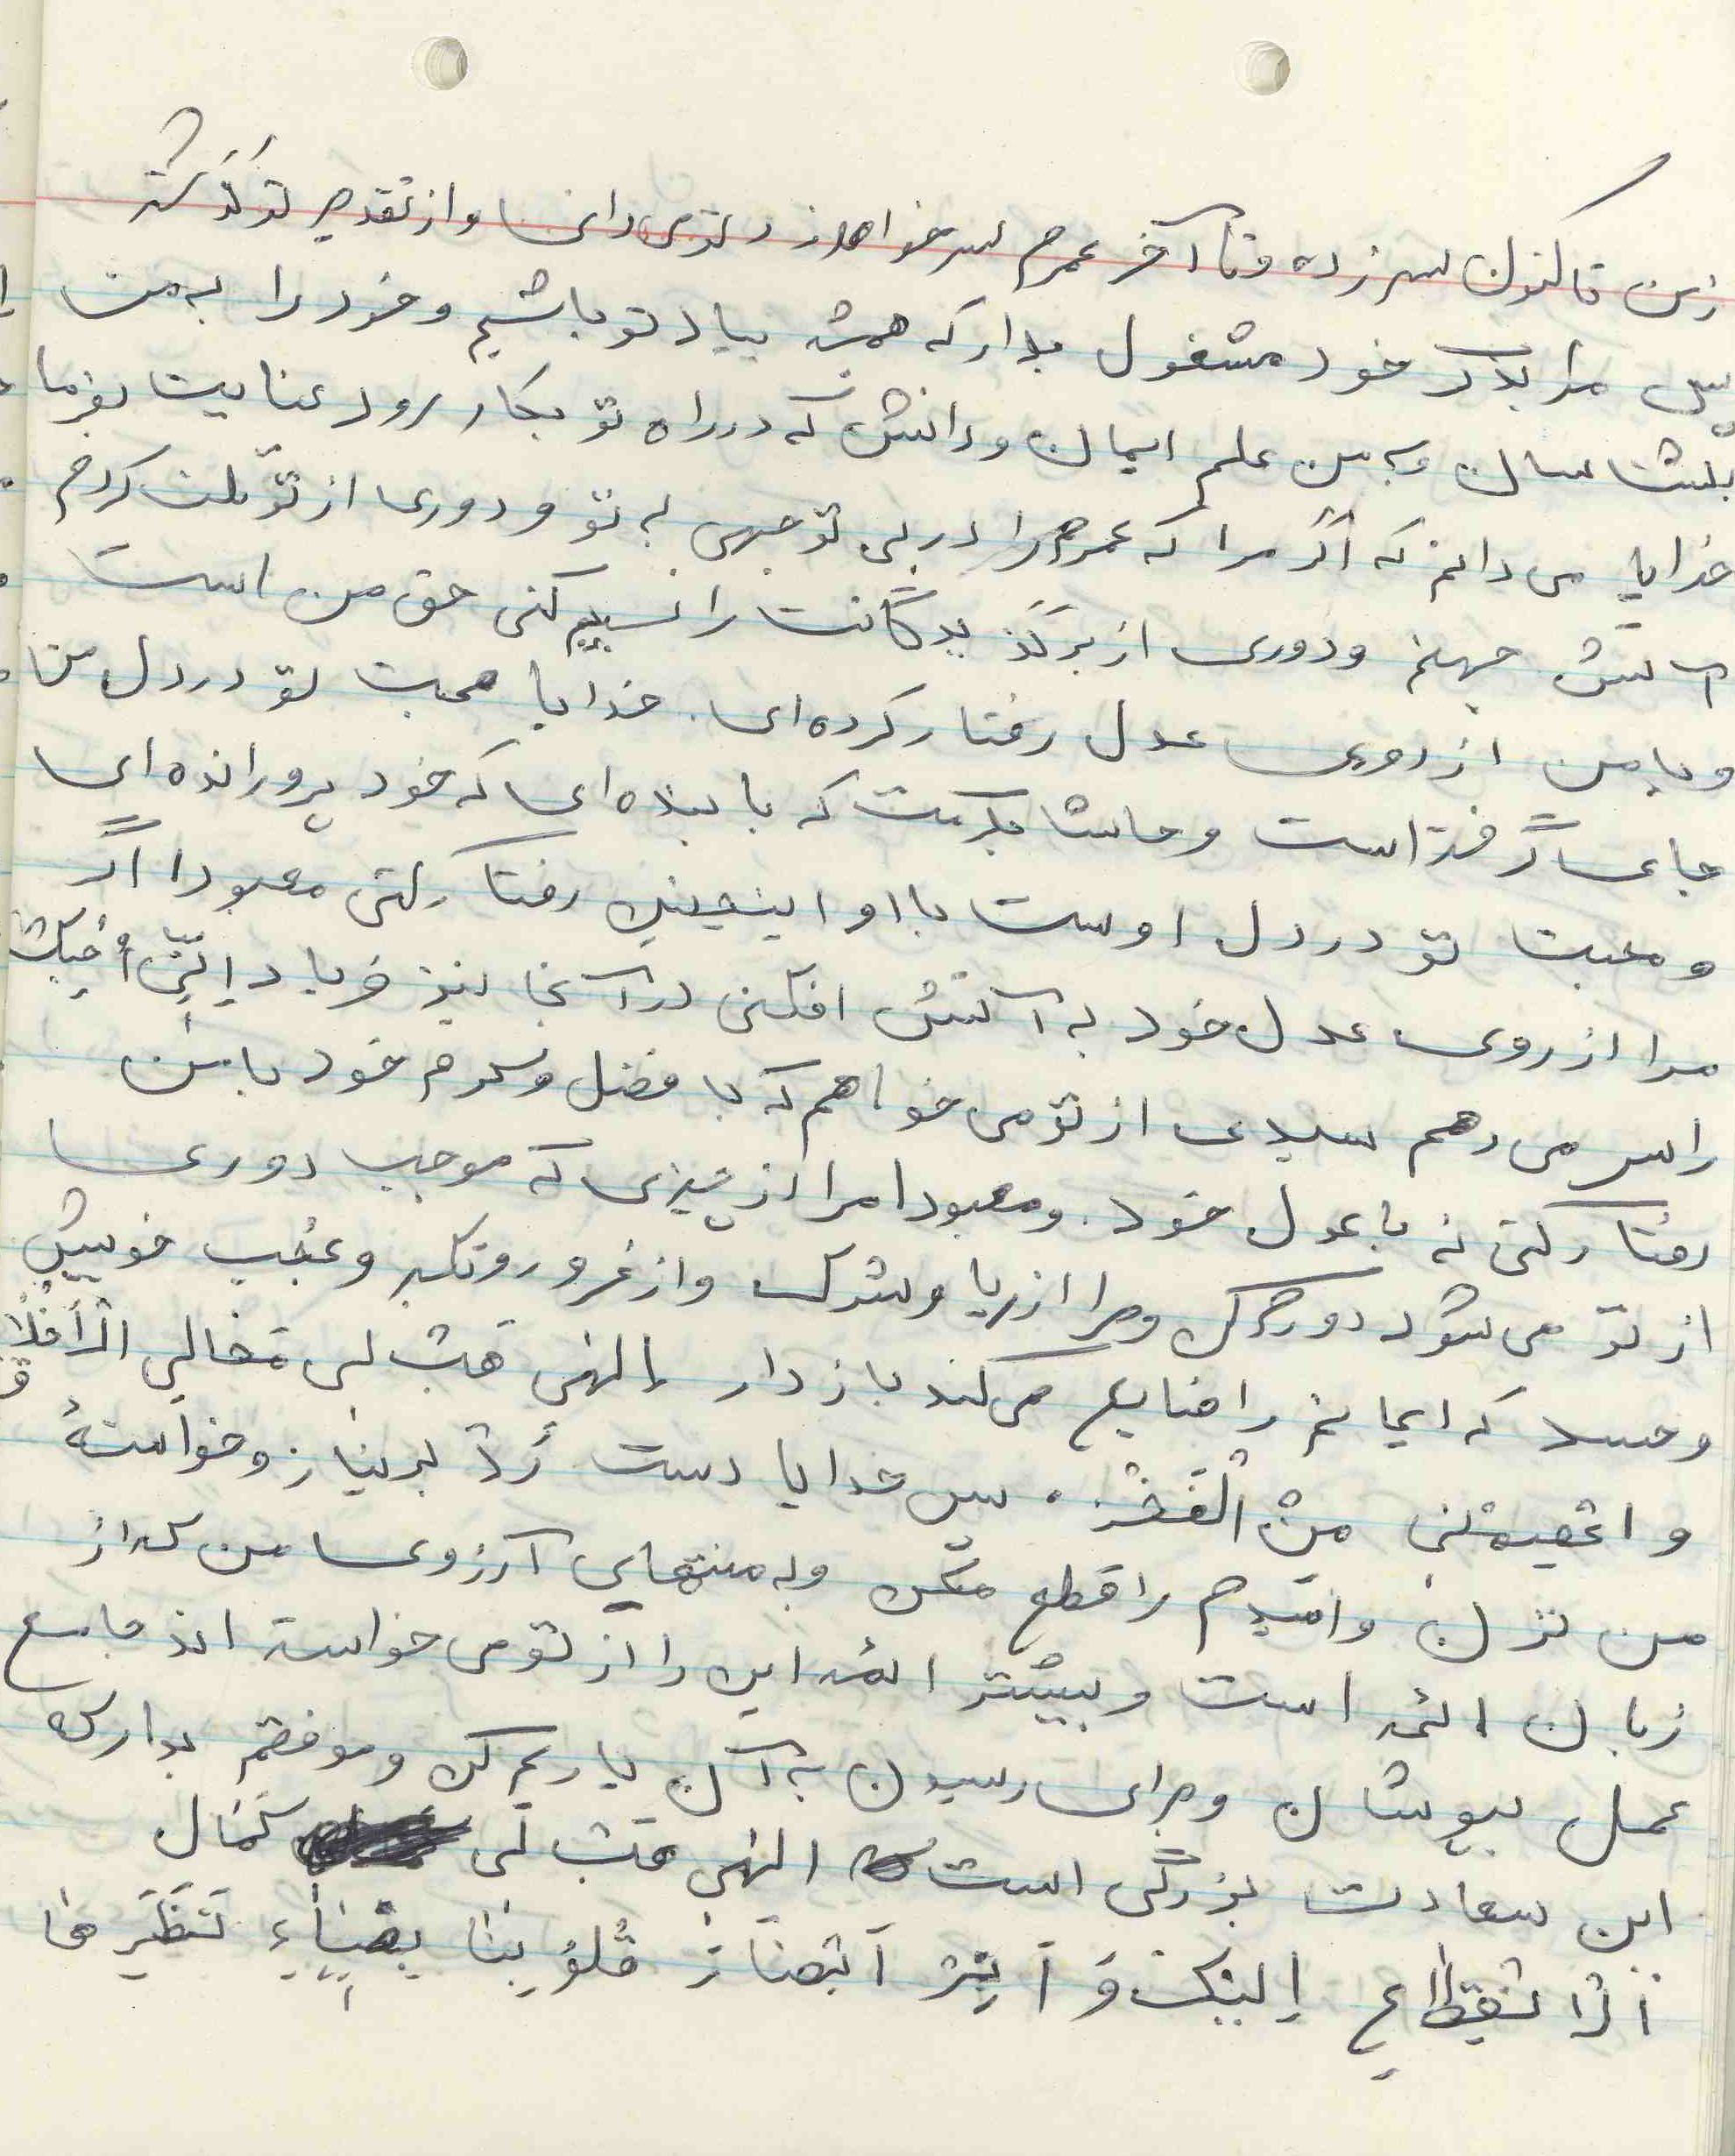 زمن تاکنون سرزده و تا آخر عمرم سرخواهد زد تو می دانی و از تقدیر تو گذشته
پس مرا بذکر خود مشغول بدار که همیشه بیاد تو باشیم و خود را به من
بشناسان و به من علم ایمان و دانش که در راه تو بکار رود عنایت بفرما
خدایا می دانم که اگر مرا که عمرم را در بی توجهی به تو و دوری از تو تلف کردم
آتش جهنم و دوری از را نسیبم کنی حق من است
و با من از روی عدل رفتار کرده ای. خدایا محبت تو در دل من
جای گرفته است و حاشا بکرمت که با بنده ای که خود پرورانده ای
و محبت تو در دل اوست با او اینچنین رفتار کنی معبودا اگر
مرا از روی عدل خود به آتش افکنی در آنجا نیز فریاد إنّی أُحِبُّکَ
را سر می دهم سیدی از تو می خواهم که با فضل و کرم خود با من
رفتار کنی نه با عدل خود. و معبودا مرا از چیزی که موجب دوری
از تو می شود دور کن و مرا از ریا و شرک و از غرور و تکبر و عُجب خویش
و حسد که ایمانم را ضایع می کند باز دار إلهی هَب لی مَعالی الْأَخْلاق
و اعْصِمْنی مِنَ الْفَخْرِ. پس خدایا دست رَد بر نیاز و خواستهٔ
من نزن و امّیدم را قطع مکن و به منتهای آرزوی من که از
زبان ائمه است و بیشتر ائمه این را از تو می خواسته اند جامع
عمل بپوشان و برای رسیدن به آن یاریم کن و موفقم بدار که
این سعادت بزرگی است الهی هَب لی کَمَالَ
اَلْاِنْقِطَاعِ إِلَیْکَ وَ اَنِرْ اَبْصَارَ قُلُوبِنَا بِضِیَاءِ نَظَرِهَا